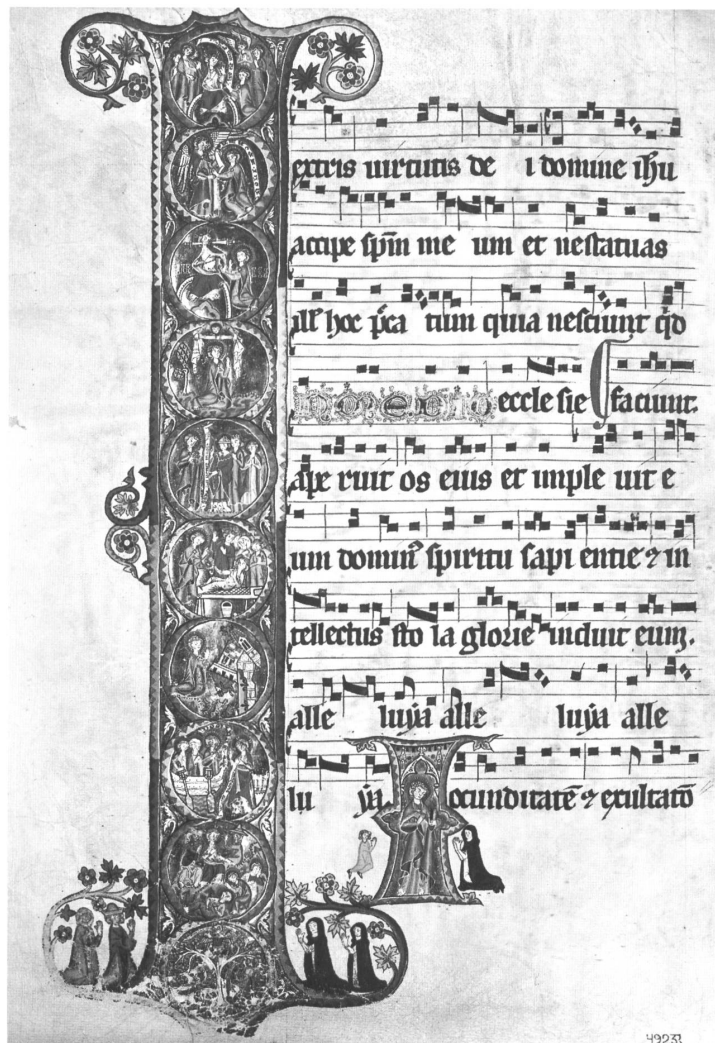 extris uirtutis de i domine ihu
accipe spm me um et nestatuas
ill' hoc pca tum quia nesciunt qd
ecclesie faciunt.
ape ruit os eius et imple uit e
um domin' spiritu sapi entie et in
tellectus sto la glorie induit eum.
alle luya alle luya alle
lu ya. Iocunditate et exultato
49231